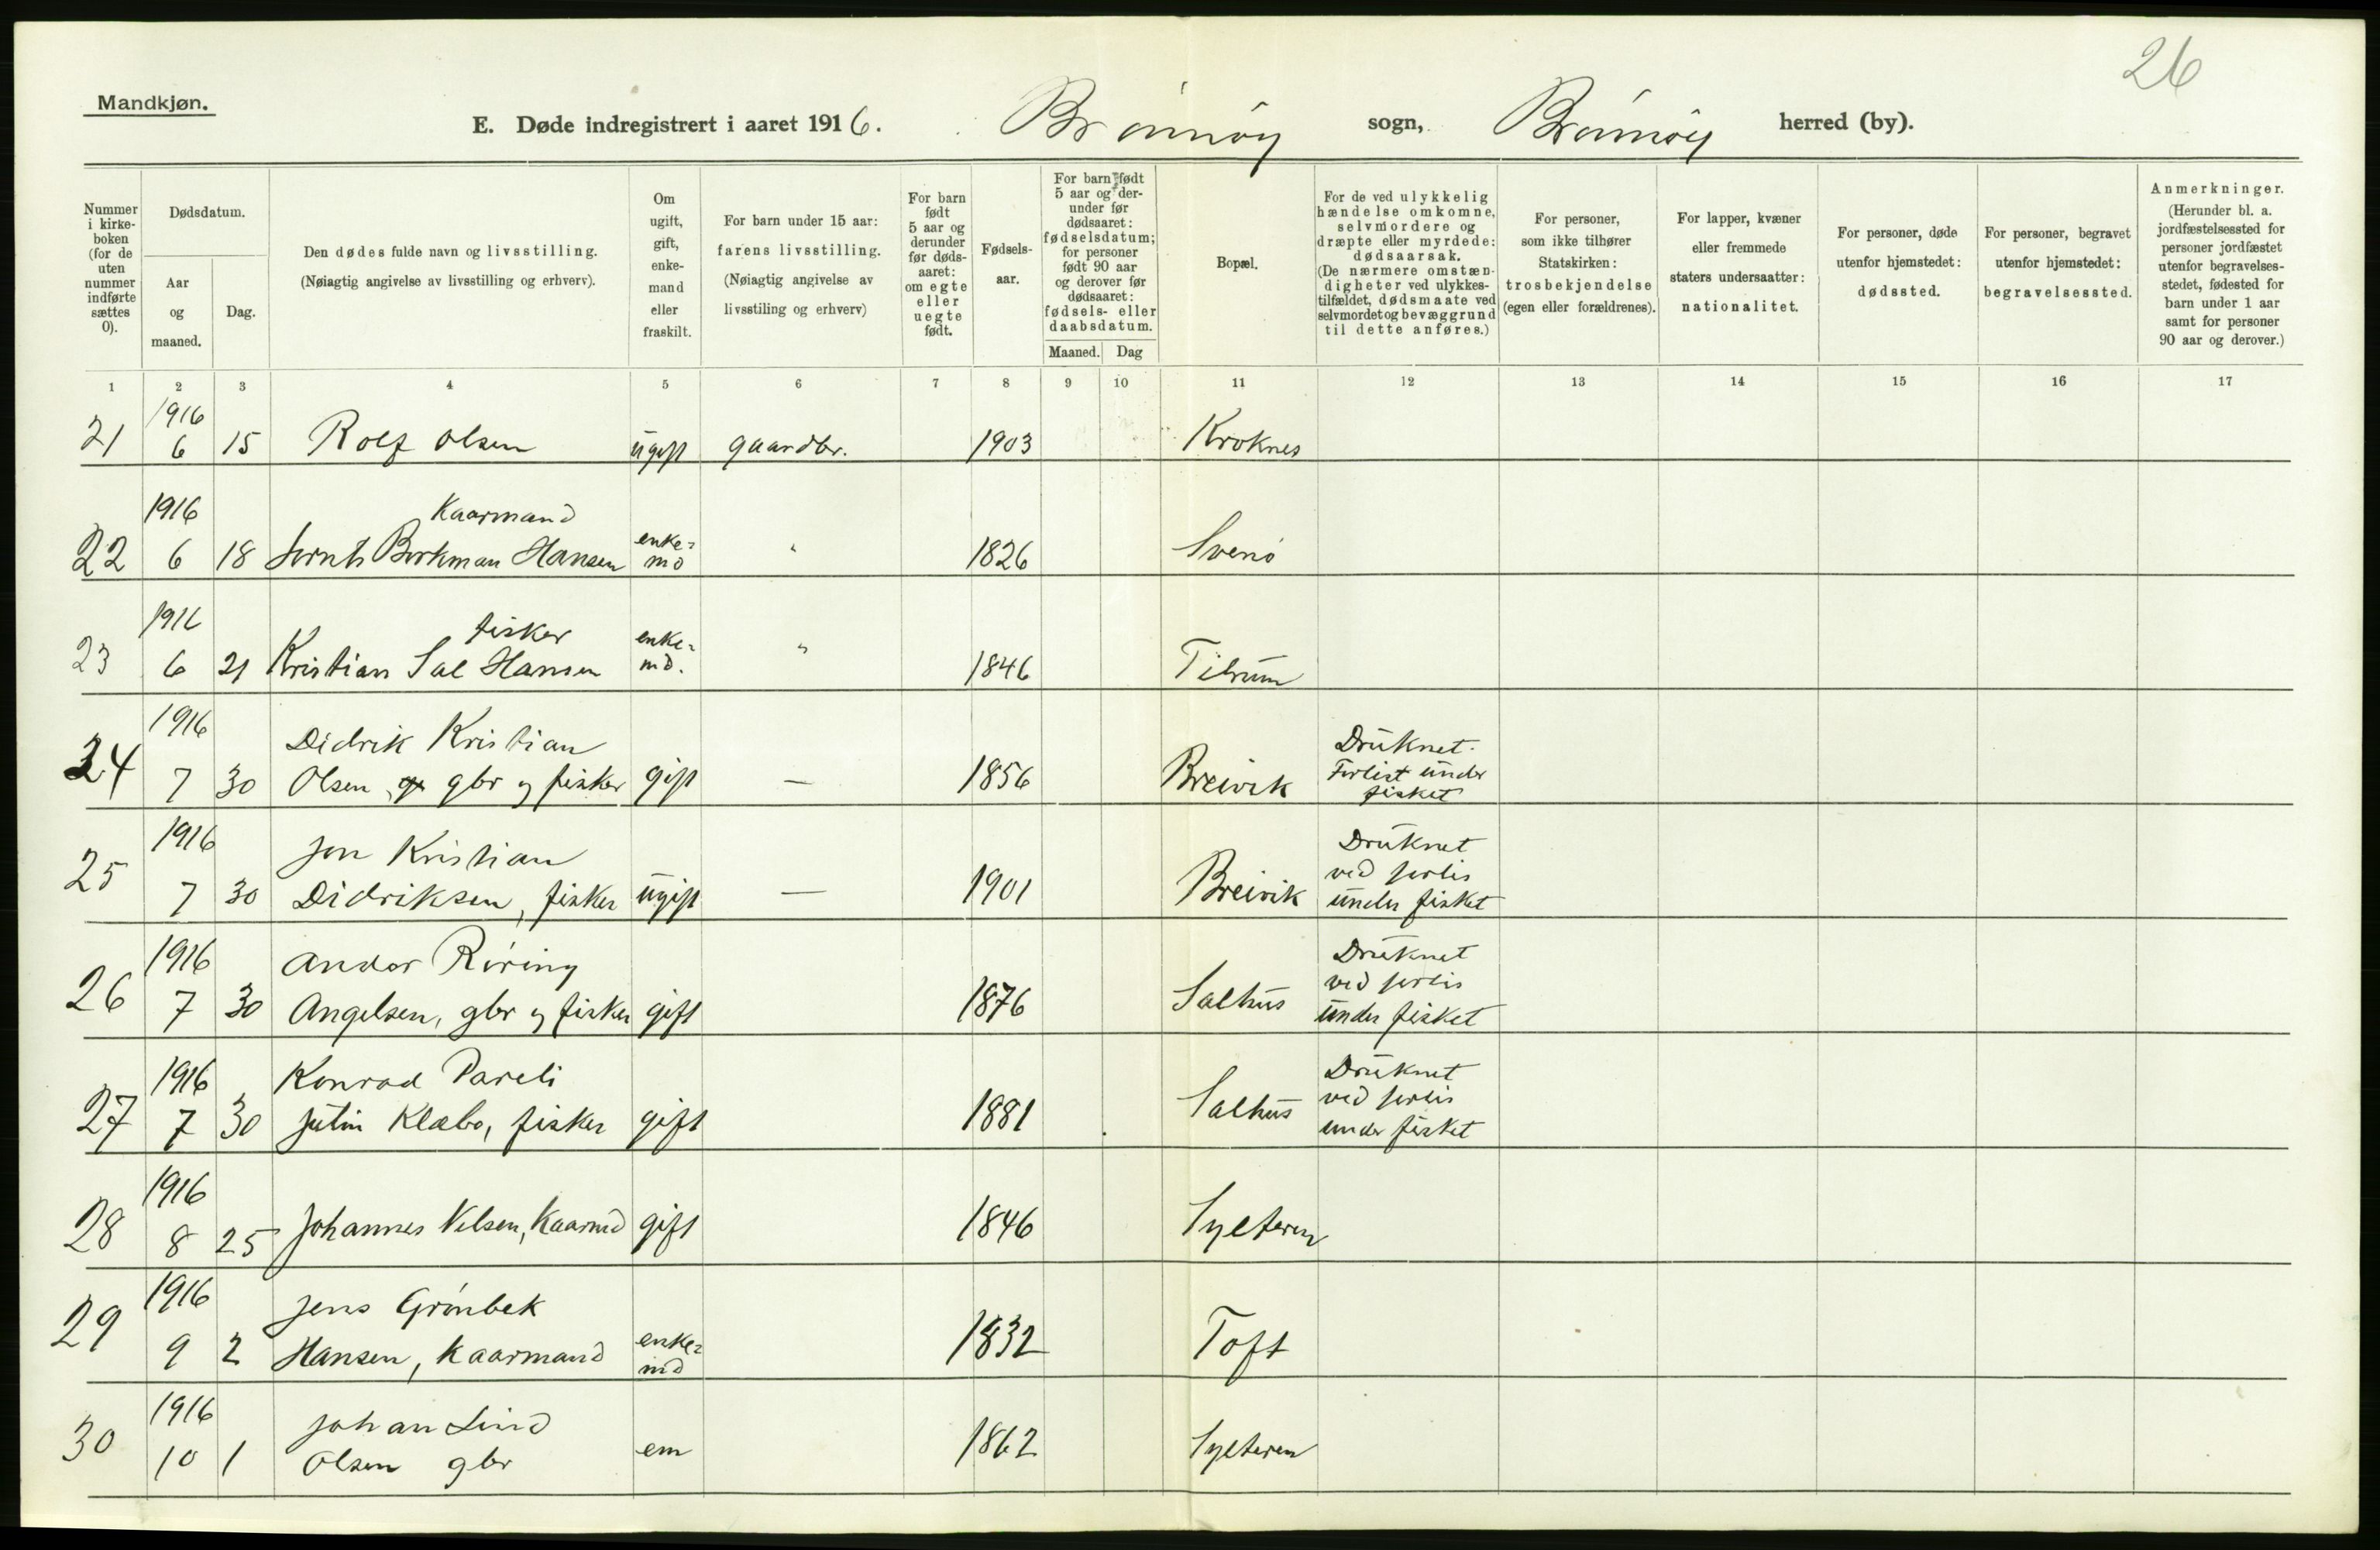 26
Mandkjøn.
E. Døde indregistrert i aaret 1916. Brönnöy sogn, Brönnöy herred (by).
Nummer i kirkeboken (for de uten nummer indførte sættes 0).
Dødsdatum.
Aar og maaned.
Dag.
Den dødes fulde navn og livsstilling.
(Nøiagtig angivelse av livsstilling og erhverv).
Om ugift, gift, enkemand eller fraskilt.
For barn under 15 aar: farens livsstilling.
(Nøiagtig angivelse av livsstiling og erhverv)
For barn født 5 aar og derunder før dødsaaret: om egte eller uegte født.
Fødselsaar.
For barn født 5 aar og derunder før dødsaaret: fødselsdatum; for personer født 90 aar og derover før dødsaaret: fødsels- eller daabsdatum.
Maaned. Dag
Bopæl.
For de ved ulykkelig hændelse omkomne, selvmordere og dræpte eller myrdede: dødsaarsak.
(De nærmere omstændigheter ved ulykkestilfældet, dødsmaate ved selvmordet og bevæggrund til dette anføres.)
For personer, som ikke tilhører Statskirken: trosbekjendelse (egen eller forældrenes).
For lapper, kvæner eller fremmede staters undersaatter: nationalitet.
For personer, døde utenfor hjemstedet: dødssted.
For personer, begravet utenfor hjemstedet: begravelsessted.
Anmerkninger.
(Herunder bl. a. jordfæstelsessted for personer jordfæstet utenfor begravelsesstedet, fødested for barn under 1 aar samt for personer 90 aar og derover.)
1 2 3 4 5 6 7 8 9 10 11 12 13 14 15 16 17
1916
21 6 15 Rolf Olsen ugift gaardbr. 1903 Kroknes
1916 Kaarmand
22 6 18 Borkman Hansen enke=md " 1826 Svenö
1916 fisker
23 6 21 Kristian Sal Hansen enke=md. " 1846 Tilrum
1916 Didrik Kristian Druknet.
24 7 30 Olsen, gbr og fisker gift — 1856 Breivik Forlist under fisket
1916 Jon Kristian Druknet
25 7 30 Didriksen, fisker ugift — 1901 Breivik ved forlis under fisket
1916 Andor Röring Druknet
26 7 30 Angelsen, gbr og fisker gift 1876 Salhus ved forlis under fisket
1916 Konrad Pareli Druknet
27 7 30 Julin Klæbo, fisker gift 1881 Salhus ved forlis under fisket
1916
28 8 25 Johannes Nilsen, Kaarmd gift 1846 Sylteren
1916 Jens Grönbek
29 9 2 Hansen, Kaarmand enke=md 1832 Toft
1916 Johan Lind
30 10 1 Olsen gbr em 1862 Sylteren